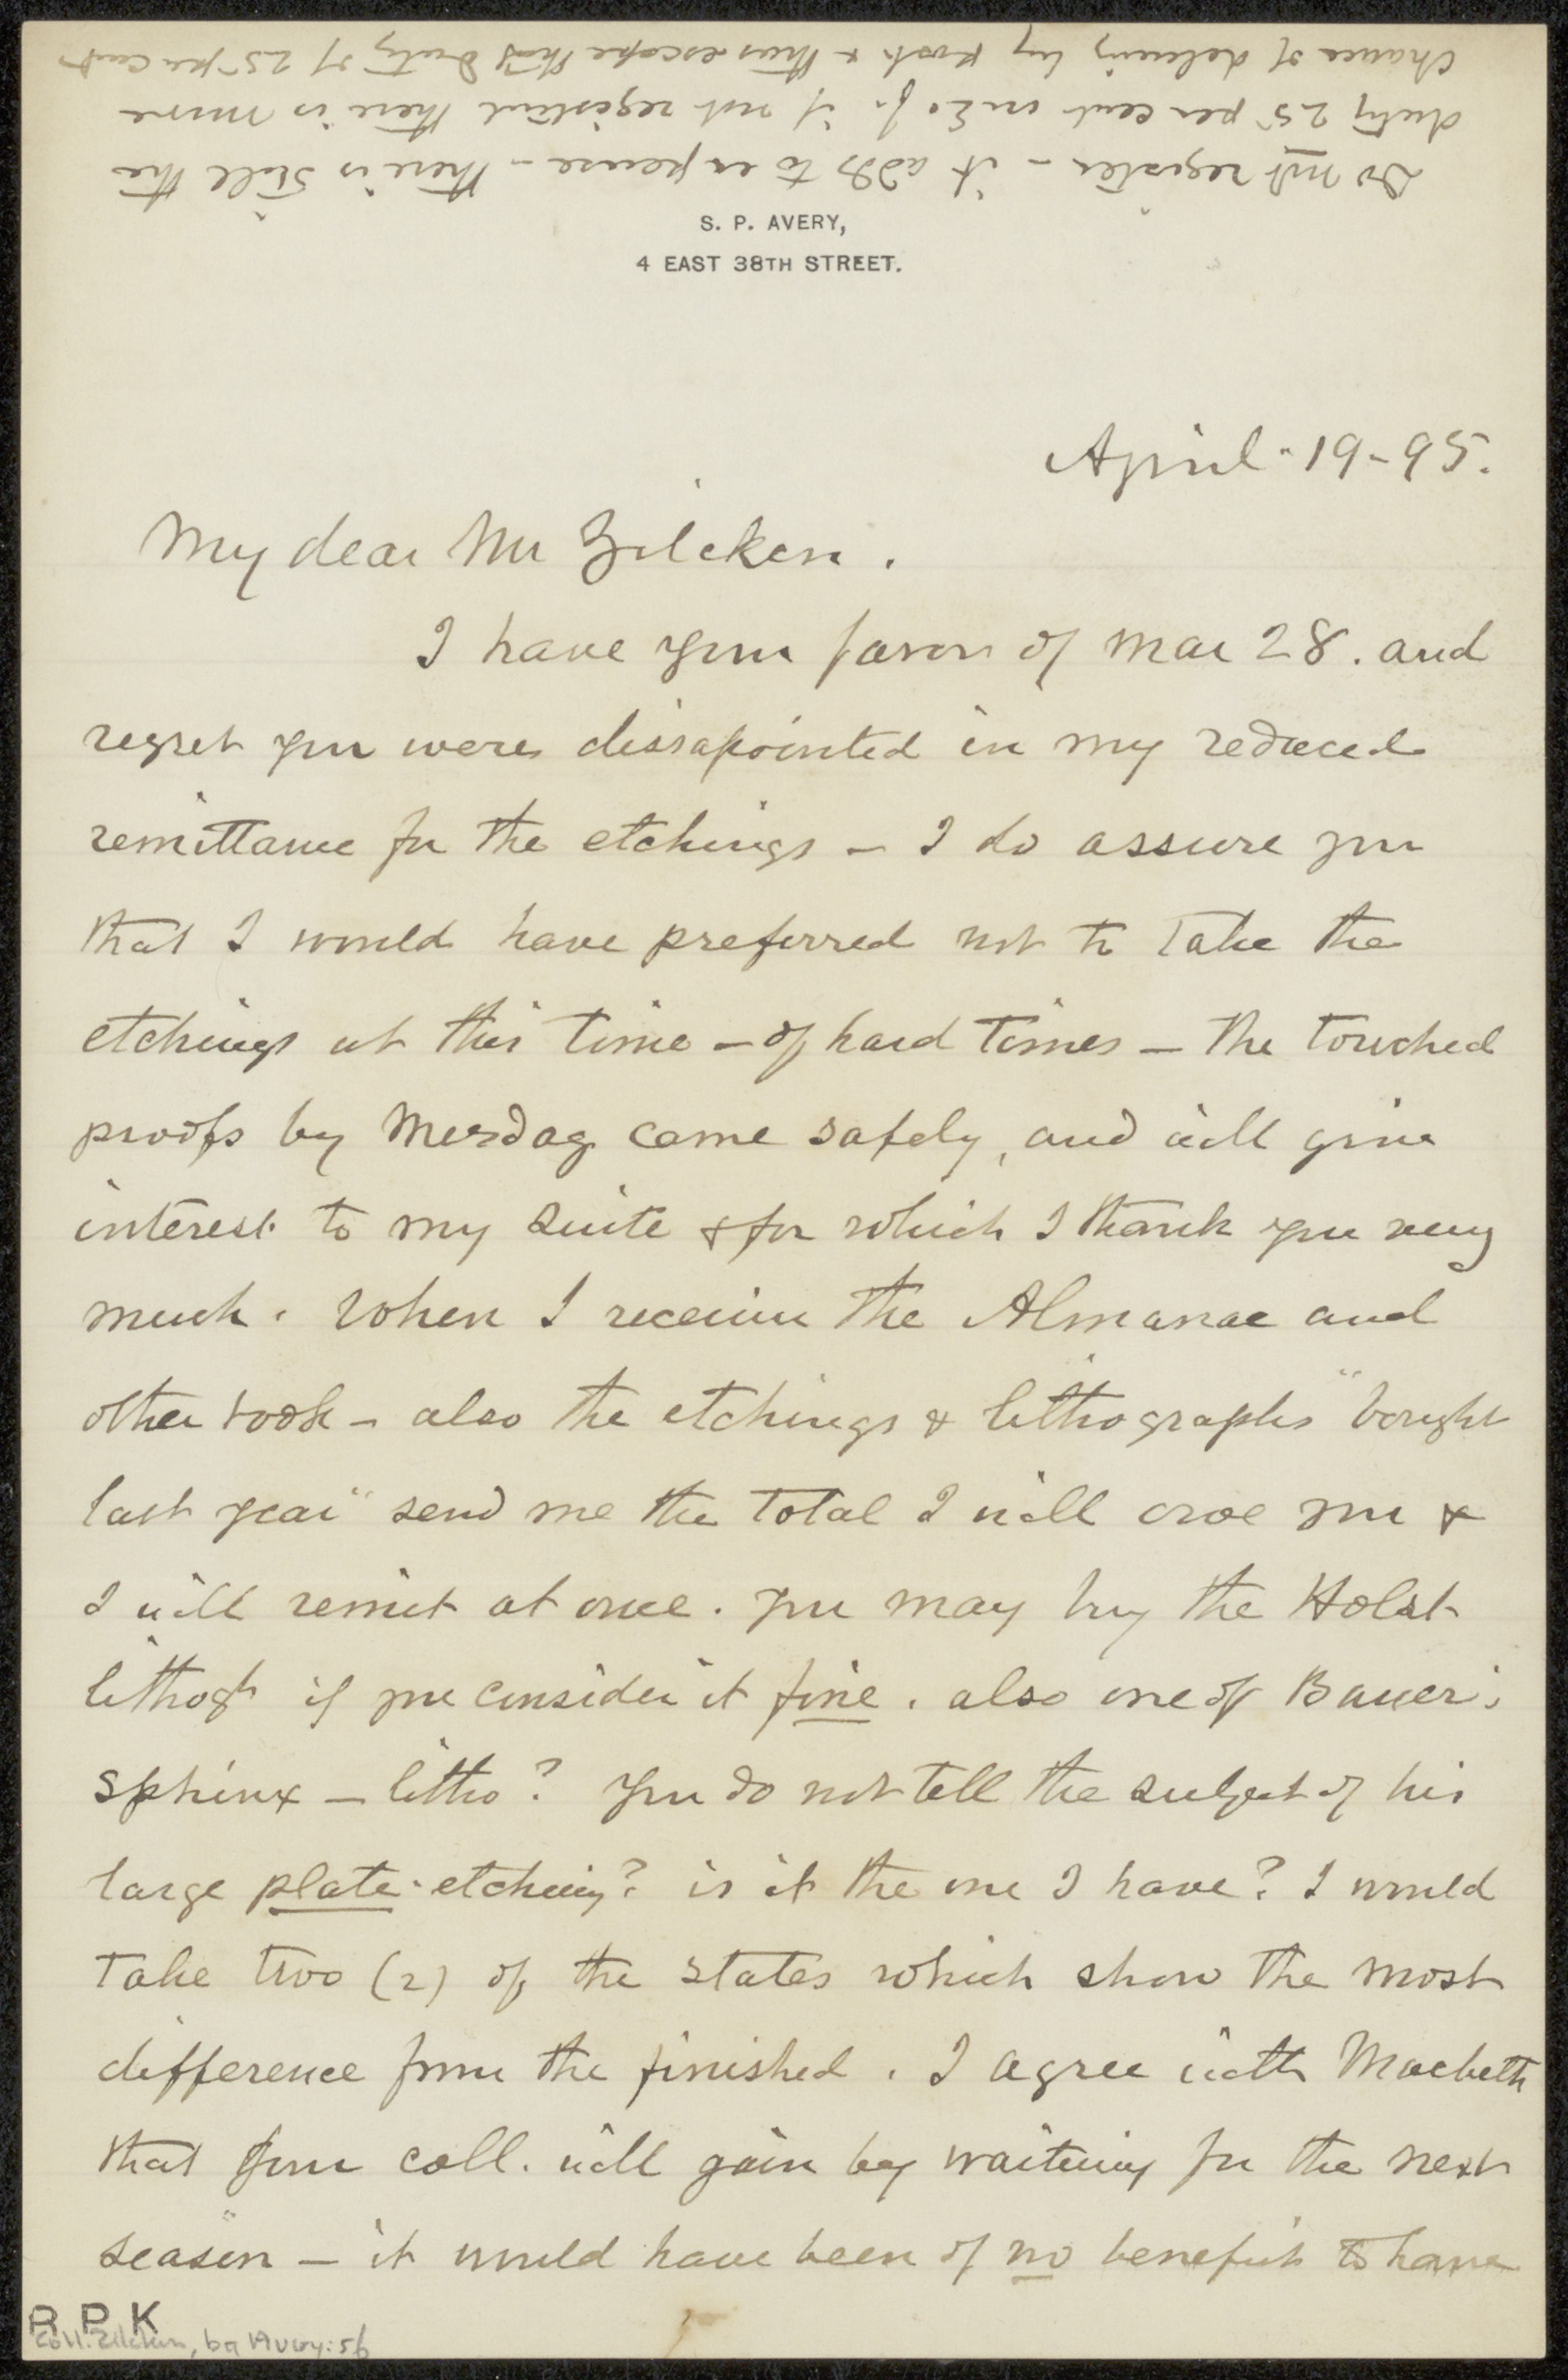 Do not register - it adds to expense - there is still the
duty 25 per cent on E if not registered there is more
chance of delivery by post & thus escape this duty of 25 per cent
S. P. AVERY,
4 EAST 38TH STREET.
April - 19 - 95.
My dear Mr Zilcken.
I have your favor of Mar 28. and
regret you were dissapointed in my reduced
remittance for the etchings - I do assure you
that I would have preferred not to take the
etchings at this time - of hard times - The touched
proofs by Mesdag came safely, and will give
interest to my suite & for which I thank you very
much. When I receive the Almanac and
other book - also the etchings & lithographs "bought
last year" send me the total I will owe you &
I will remit at once. You may buy the Holst
lithogh if you consider it fine. also one of Bauer's
sphinx - litho? You do not tell the subject of his
large plate - etching? is it the one I have? I would
take two (2) of the states which show the most
difference from the finished. I agree with Macbeth
that your coll. will gain by waiting for the next
season - it would have been of no benefit to have
R P K
Coll. Zilcken, b9 Avery: 56